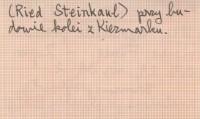 (Ried Steinkaul) przy bu-
dowie kolei z Kiezmarku.